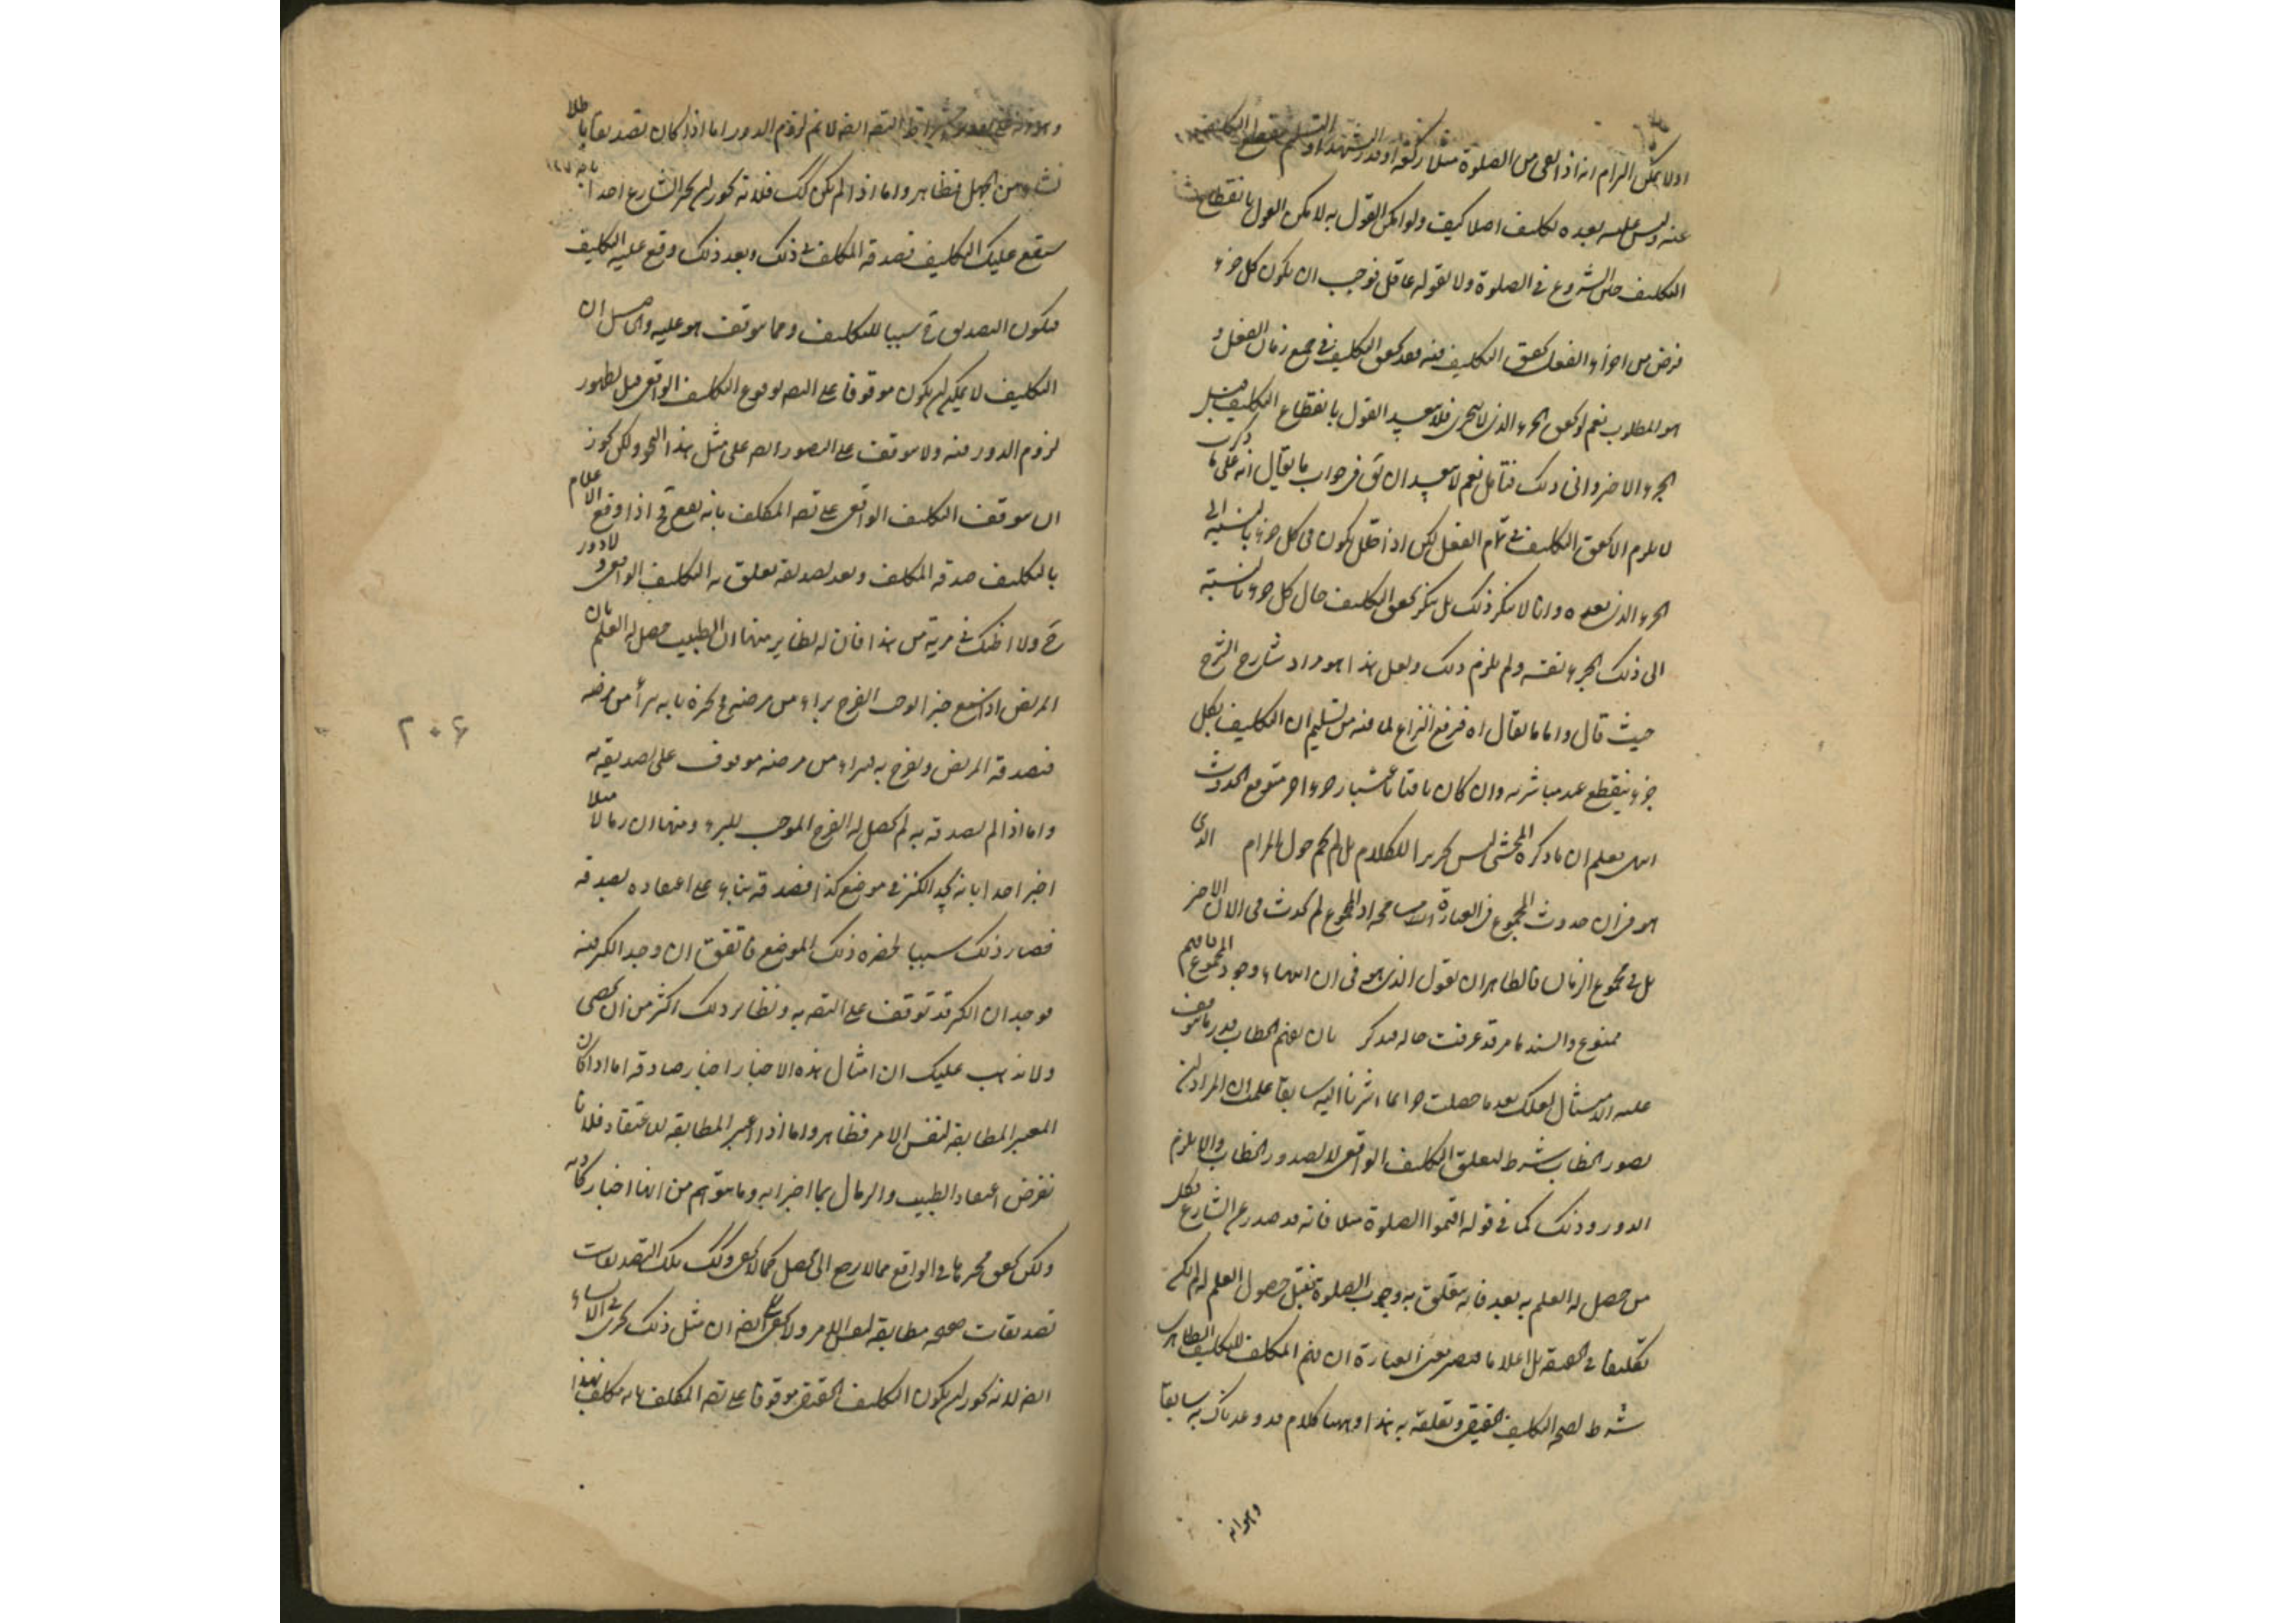 اذ لا يمكن الزام انه اذا بقي من الصلوة مثلا ركعة او قدر التشهد او التسليم ينقطع التكليف
عنه وليس عليه بعده تكليف اصلا كيف ولو امكن القول به لا يمكن القول بانقطاع
التكليف حين الشروع في الصلوة ولا يقوله عاقل فوجب ان يكون كل جزء
فرض من اجزاء الفعل تحقق التكليف فيه فقد تحقق التكليف في جميع زمان الفعل و
هو المطلوب نعم لو تحقق الجزء الذي لا يتجزى فلا يبعد القول بانقطاع التكليف قبل
الجزء الاخر واني ذلك فتامل نعم لا يبعد ان يق في جواب ما يقال انه على ما ذكرت
لا يلزم الا تحقق التكليف في تمام الفعل لكن اذا حلل يكون في كل جزء بالنسبة الى
الجزء الذي بعده وانا لا ننكر ذلك بل ننكر تحقق التكليف حال كل جزء بالنسبة
الى ذلك الجزء نفسه ولم يلزم ذلك ولعل هذا هو مراد شارح الشرح
حيث قال واما ما يقال اه فرفع النزاع لما فيه من تسليم ان التكليف بكل
جزء ينقطع عند مباشرته وان كان باقيا باعتبار جزء اخر متوقع الحدوث
انتهى يعلم ان ما ذكره المحشي ليس تحريرا للكلام بل لم يحم حول المرام الذي
هو في ان حدوث المجموع في العبارة مسامحة اذ المجموع لم يحدث في الان الاخر
بل في مجموع الزمان فالظاهر ان يقول الذي هو في ان انتهاء وجود المجموع
ممنوع والسند ما مر قد عرفت حاله فتذكر بان يفهم الخطاب قدر ما يتوقف
عليه الامتثال لعلك بعد ما حصلت جوانب ما اشرنا اليه سابقا علمت ان المراد ان
تصور الخطاب شرط لتعلق التكليف الواقعي لا لصدور الخطاب والا يلزم
الدور وذلك كما في قوله اقيموا الصلوة مثلا فانه قد صدر عن الشارع فكل
من حصل له العلم به بعد فانه يتعلق به وجوب الصلوة فقبل حصول العلم له لم يكن
تكليفا في الحقيقة بل اعلاما فيصير معنى العبارة ان فهم المكلف للتكليف الظاهري
شرط لصحة التكليف الحقيقي وتعلقه به هذا وههنا كلام قد وعدناك به سابقا
وهو انه
التصديق ايضا لا يتم لزوم الدور اما اذا كان تصديقا باطلا
من الجهل فظاهر واما اذا لم يكن كك فلانه يجوز ان يخبر الشارع احدا بانه
سيقع عليك التكليف فصدقه المكلف في ذلك وبعد ذلك وقع عليه التكليف
فيكون التصديق سببا للتكليف ومما يتوقف هو عليه والحاصل ان
التكليف لا يمكن ان يكون موقوفا على التصديق بوقوع التكليف الواقعي قبل لظهور
لزوم الدور فيه ولا يتوقف على التصور ايضا على مثل هذا النحو ولكن يجوز
ان يتوقف التكليف الواقعي على تصديق المكلف بانه يقع في اذا وقع الاعلام
بالتكليف صدقه المكلف وبعد تصديقه تعلق به التكليف الواقعي ولا دور
ح ولا اظنك في مرية من هذا فان له نظاير منها ان الطبيب حصل له العلم بان
المريض اذا سمع خبر الفرح براء من مرضه فيخبره بانه برأ من مرضه
فيصدقه المريض ويفرح به فبراءه من مرضه موقوف على تصديقه به
واما اذا لم يصدقه به لم يحصل له الفرح الموجب للبرء ومنها ان رمالا مثلا
اخبر احدا بانه يجد الكنز في موضع كذا فصدقه بناء على اعتقاده بصدقه
فصار ذلك سببا لحفره ذلك الموضع فاتفق ان وجد الكنز فيه
فوجدان الكنز قد توقف على التصديق به ونظاير ذلك اكثر من ان يحصى
ولا يذهب عليك ان امثال هذه الاخبار اخبار صادقة اما اذا كان
المعتبر المطابقة لنفس الامر فظاهر واما اذا اعتبر المطابقة للاعتقاد فلانا
نفرض اعتقاد الطبيب والرمال بما اخبرا به وما يتوهم من انها اخبار كاذبة
ولكن تحقق مخبرها في الواقع مما لا يرجع الى محصل كما لا يخفى وكذلك تلك التصديقات
تصديقات صحيحة مطابقة لنفس الامر ولا يخفى ايضا ان مثل ذلك يجري في الانشاء
ايضا لانه يجوز ان يكون التكليف الحقيقي موقوفا على تصديق المكلف بانه مكلف بهذا
٢٠٤